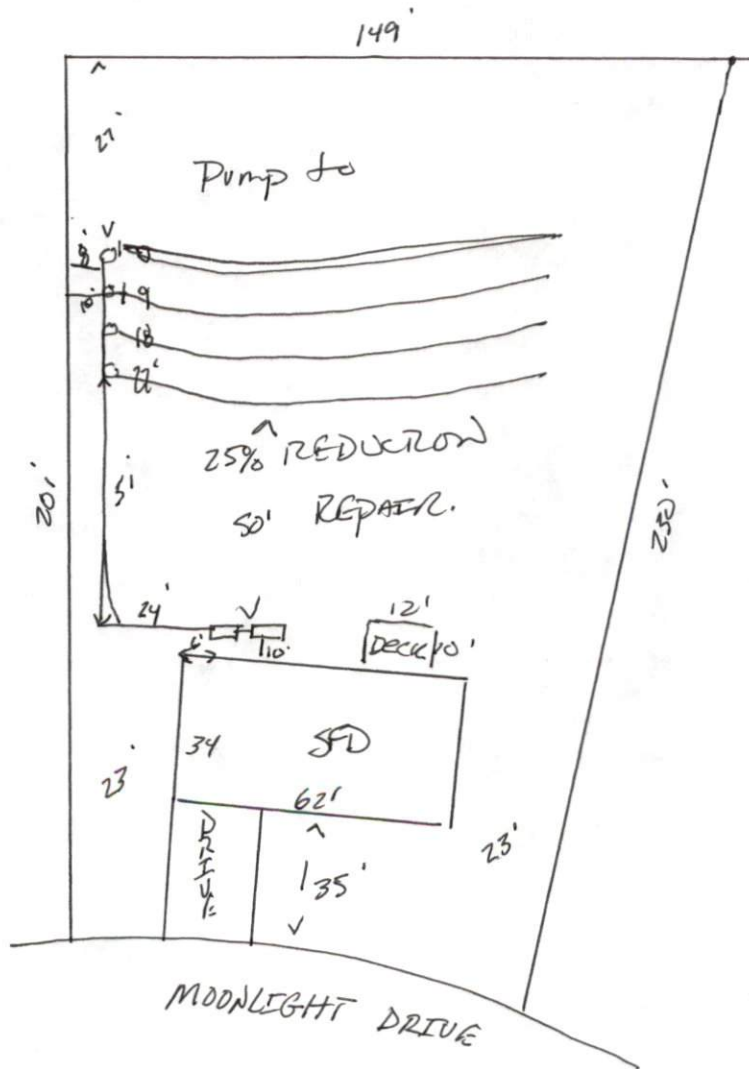 149'
27'
Pump to
8'
0
10'
9
18
22'
25% REDUCTION
50' REPAIR.
201'
51'
24'
12'
DECK 10'
6'
10'
34
SFD
23'
62'
DRIVE
35'
23'
MOONLIGHT DRIVE